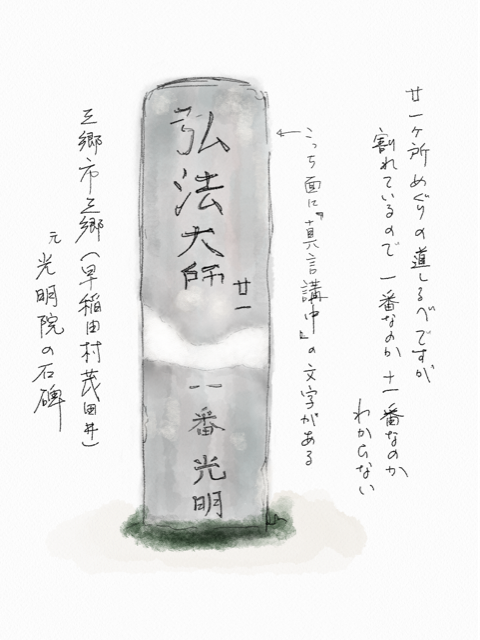 廿一ヶ所めぐりの道しるべですが
割れているので一番なのか十一番なのか
わからない
←こっち面に『真言講中』の文字がある
弘法大師
廿一
一番光明
三郷市三郷(早稲田村茂田井)
元光明院の石碑